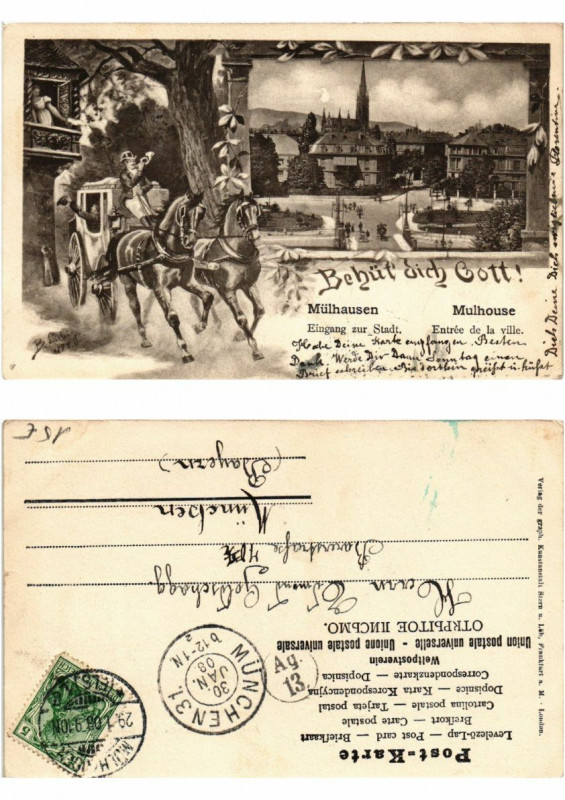 Behüt dich Gott!
Mülhausen Mulhouse
Eingang zur Stadt. Entrée de la ville.
Habe Deine Karte empfangen. Besten
Dank. Werde Dir Dann Sonntag einen
Brief schreiben. Bis dorthin grüßt u. küßt
Dich Deine Dich
Post-Karte
Levelező-Lap — Post card — Briefkaart
Brefkort — Carte postale
Cartolina postale — Tarjeta postal
Dopisnice — Karta Korespondencyjna
Correspondenzkarte — Dopisnica
Weltpostverein
Union postale universelle - Unione postale universale
ОТКРЫТОЕ ПИСЬМО.
Herrn
München
(Bayern)
Verlag der graph. Kunstanstalt Stern u. Löb, Frankfurt a. M. - London.
MÜNCHEN 31.
30
JAN.
03
b 12-1N
a
Ag.
13
5